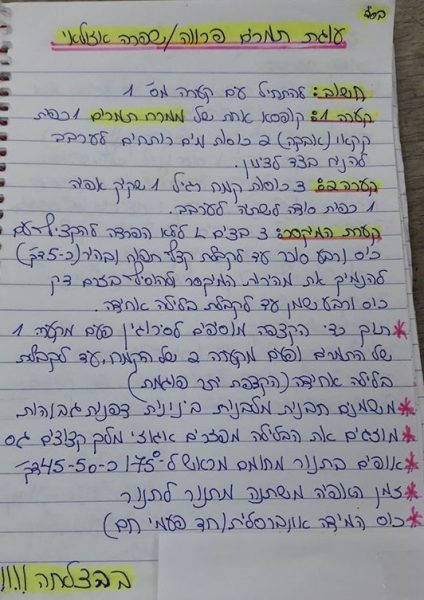 בס"ד
עוגת תמרים פרווה/שפרה אזולאי
חשוב: להתחיל עם קערה מס' 1
קערה 1: קופסא אחת של ממרח תמרים 1 כפית
קקאו (אבקה) 2 כוסות מים רותחים לערבב
להניח בצד לצינון.
קערה 2: 3 כוסות קמח רגיל 1 שקית אפיה
1 כפית סודה לשתיה לערבב.
קערת המיקסר: 3 בצים L ללא הפרדה להקציף עם
כוס ורבע סוכר עד לקבלת קצף תפוח ובהיר (כ-5 דק')
להנמיך את מהירות המיקסר ולהוסיף בזרם דק
כוס ורבע שמן עד לקבלת בלילה אחידה.
*תוך כדי הקצפה מוסיפים לסרוגין פעם מקערה 1
של התמרים ופעם מקערה 2 של הקמח, עד לקבלת
בלילה אחידה (הקצפת יתר פוגמת)
*משמנים תבנית מלבנית בינונית דפנות גבוהות
*מוזגים את הבלילה מפזרים אגוזי מלך קצוצים גס
*אופים בתנור מחומם מראש ל-175° כ-45-50 דק'
*זמן האפיה משתנה מתנור לתנור
*כוס המידה אוניברסלית (חד פעמי חם)
בהצלחה !!!!